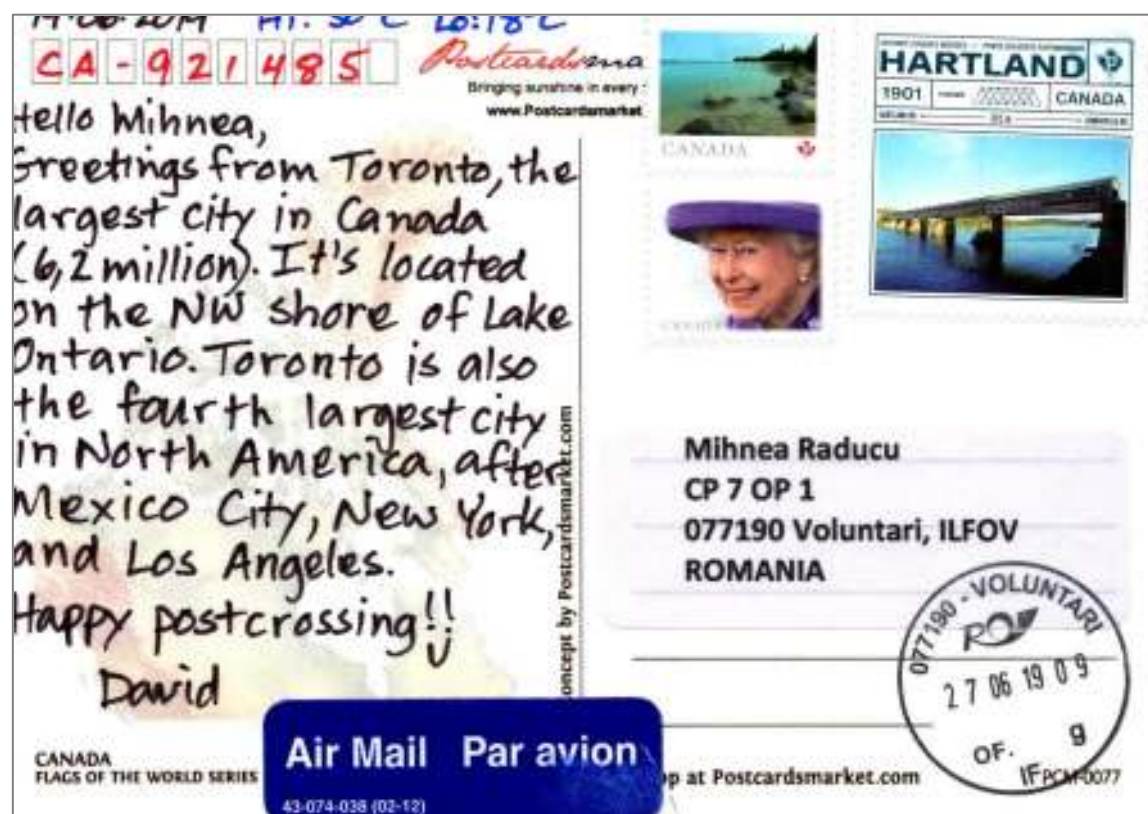 CA-921485
Bringing sunshine in every
www.Postcardsmarket
Hello Mihnea,
Greetings from Toronto, the
largest city in Canada
(6,2 million). It's located
on the NW shore of Lake
Ontario. Toronto is also
the fourth largest city
in North America, after
Mexico City, New York,
and Los Angeles.
Happy postcrossing!!
David
CANADA
FLAGS OF THE WORLD SERIES
Air Mail Par avion
43-074-038 (02-12)
oncept by Postcardsmarket.com
CANADA
CANADA
HARTLAND
1901
CANADA
Mihnea Raducu
CP 7 OP 1
077190 Voluntari, ILFOV
ROMANIA
077190 - VOLUNTARI
27 06 19 09
OF. 9
IF
op at Postcardsmarket.com
PCM-0077